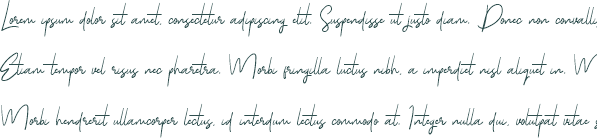 Lorem ipsum dolor sit amet, consectetur adipiscing elit. Suspendisse ut justo diam. Donec non convallis
Etiam tempor vel risus nec pharetra. Morbi fringilla luctus nibh, a imperdiet nisl aliquet in. M
Morbi hendrerit ullamcorper lectus, id interdum lectus commodo at. Integer nulla dui, volutpat vitae s